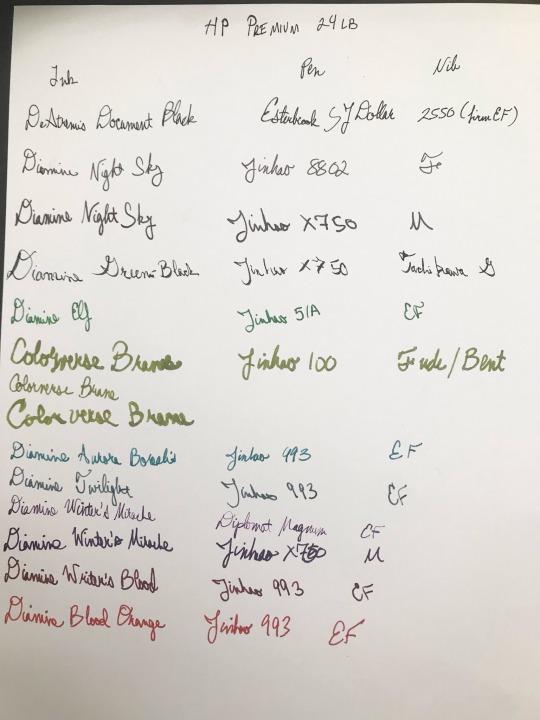 HP PREMIUM 24 LB
Ink Pen Nib
DeAtramis Document Black Esterbrook SJ Dollar 2550 (firm EF)
Diamine Night Sky Jinhao 8802 F
Diamine Night Sky Jinhao X750 M
Diamine Green Black Jinhao X750 Tachikawa G
Diamine Elf Jinhao 51A EF
Colorverse Brane Jinhao 100 Fude/Bent
Colorverse Brane
Colorverse Brane
Diamine Aurora Borealis Jinhao 993 EF
Diamine Twilight Jinhao 993 EF
Diamine Winter's Miracle Diplomat Magnum EF
Diamine Winter's Miracle Jinhao X750 M
Diamine Writer's Blood Jinhao 993 EF
Diamine Blood Orange Jinhao 993 EF